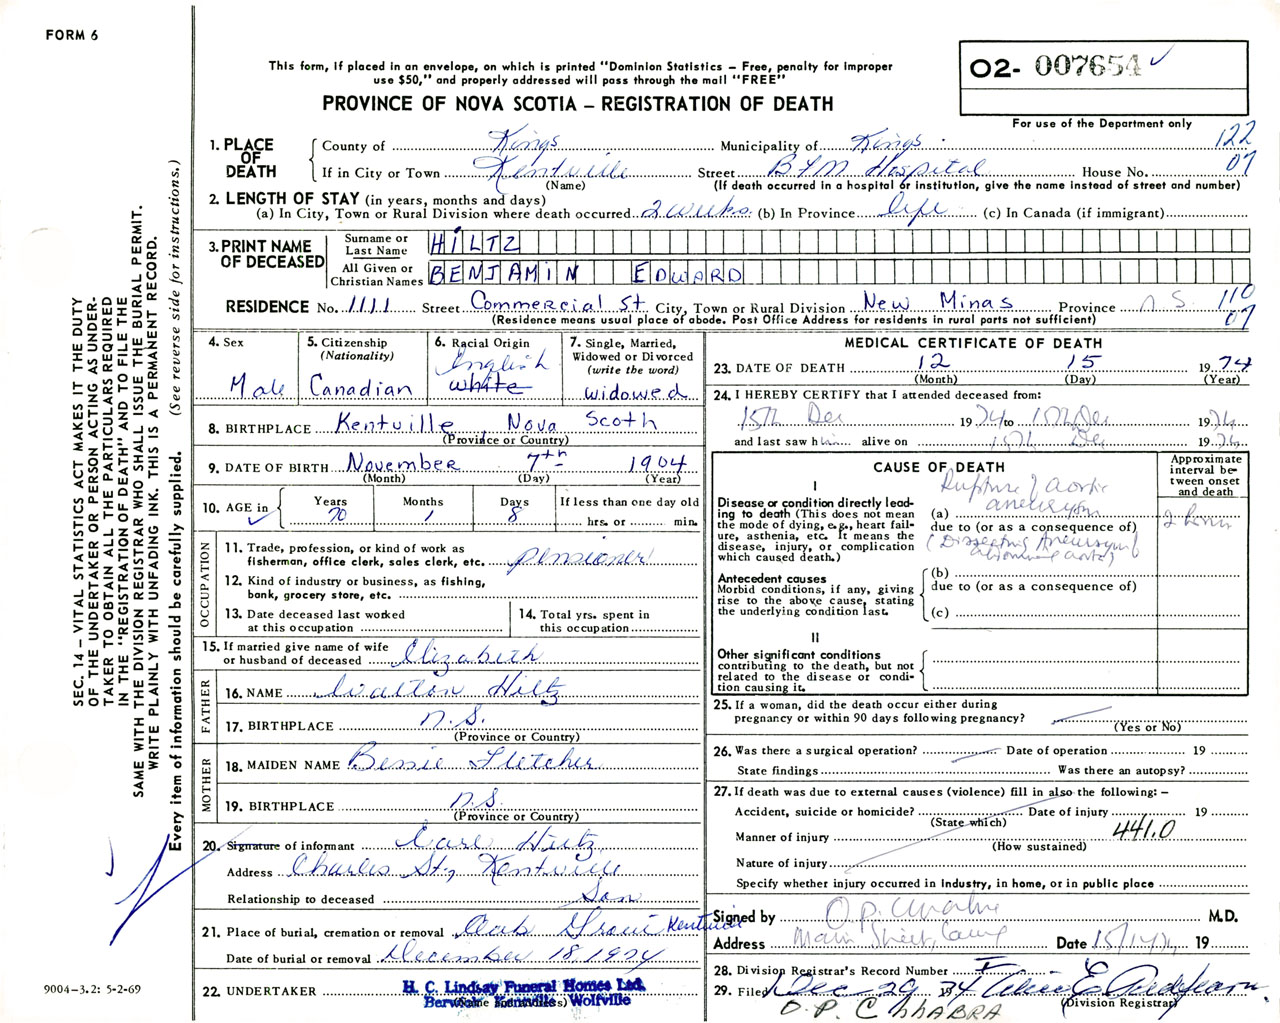 FORM 6
This form, if placed in an envelope, on which is printed "Dominion Statistics — Free, penalty for improper
use $50," and properly addressed will pass through the mail "FREE"
PROVINCE OF NOVA SCOTIA — REGISTRATION OF DEATH
02- 007654
For use of the Department only
122
07
1. PLACE OF DEATH
County of Kings Municipality of Kings
If in City or Town Kentville Street BFM Hospital House No.
(Name) (If death occurred in a hospital or institution, give the name instead of street and number)
2. LENGTH OF STAY (in years, months and days)
(a) In City, Town or Rural Division where death occurred 2 weeks (b) In Province life (c) In Canada (if immigrant)
3. PRINT NAME OF DECEASED
Surname or Last Name HILTZ
All Given or Christian Names BENJAMIN EDWARD
RESIDENCE No. 1111 Street Commercial St City, Town or Rural Division New Minas Province N.S. 110
07
(Residence means usual place of abode. Post Office Address for residents in rural parts not sufficient)
SEC. 14 — VITAL STATISTICS ACT MAKES IT THE DUTY
OF THE UNDERTAKER OR PERSON ACTING AS UNDER-
TAKER TO OBTAIN ALL THE PARTICULARS REQUIRED
IN THE "REGISTRATION OF DEATH" AND TO FILE THE
SAME WITH THE DIVISION REGISTRAR WHO SHALL ISSUE THE BURIAL PERMIT.
WRITE PLAINLY WITH UNFADING INK. THIS IS A PERMANENT RECORD.
Every item of information should be carefully supplied. (See reverse side for instructions.)
4. Sex
Male
5. Citizenship
(Nationality)
Canadian
6. Racial Origin
English
White
7. Single, Married,
Widowed or Divorced
(write the word)
widowed
8. BIRTHPLACE Kentville Nova Scotia
(Province or Country)
9. DATE OF BIRTH November 7th 1904
(Month) (Day) (Year)
10. AGE in
Years Months Days If less than one day old
70 1 8 hrs. or min.
OCCUPATION
11. Trade, profession, or kind of work as
fisherman, office clerk, sales clerk, etc. pensioner
12. Kind of industry or business, as fishing,
bank, grocery store, etc.
13. Date deceased last worked
at this occupation
14. Total yrs. spent in
this occupation
15. If married give name of wife
or husband of deceased Elizabeth
FATHER
16. NAME Walton Hiltz
17. BIRTHPLACE N.S.
(Province or Country)
MOTHER
18. MAIDEN NAME Bessie Fletcher
19. BIRTHPLACE N.S.
(Province or Country)
20. Signature of informant Carl Hiltz
Address Charles St, Kentville
Relationship to deceased Son
21. Place of burial, cremation or removal Oak Grove Kentville
Date of burial or removal December 18 1974
22. UNDERTAKER H. C. Lindsay Funeral Homes Ltd.
Berwick Kentville Wolfville
9004-3.2: 5-2-69
MEDICAL CERTIFICATE OF DEATH
23. DATE OF DEATH 12 15 1974
(Month) (Day) (Year)
24. I HEREBY CERTIFY that I attended deceased from:
15th Dec 1974 to 15th Dec 1974
and last saw him alive on 15th Dec 1974
CAUSE OF DEATH
Approximate
interval be-
tween onset
and death
I
Disease or condition directly lead-
ing to death (This does not mean
the mode of dying, e.g., heart fail-
ure, asthenia, etc. It means the
disease, injury, or complication
which caused death.)
Rupture of aortic
(a) aneurysm
due to (or as a consequence of)
(Dissecting Aneurysm of
abdominal aorta)
2 hours
Antecedent causes
Morbid conditions, if any, giving
rise to the above cause, stating
the underlying condition last.
(b)
due to (or as a consequence of)
(c)
II
Other significant conditions
contributing to the death, but not
related to the disease or condi-
tion causing it.
25. If a woman, did the death occur either during
pregnancy or within 90 days following pregnancy?
(Yes or No)
26. Was there a surgical operation? Date of operation 19
State findings Was there an autopsy?
27. If death was due to external causes (violence) fill in also the following: —
Accident, suicide or homicide? Date of injury 19
(State which)
Manner of injury 441.0
(How sustained)
Nature of injury
Specify whether injury occurred in industry, in home, or in public place
Signed by O.P. M.D.
Address Main Street, Date 15/12/74 19
28. Division Registrar's Record Number
29. Filed Dec 29 1974
(Division Registrar)
O. P. CHHABRA